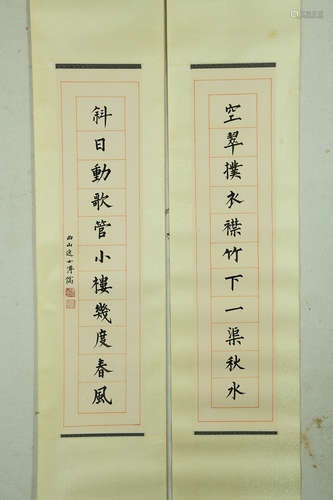 空翠撲衣襟竹下一渠秋水
斜日動歌管小樓幾度春風
西山逸士溥儒